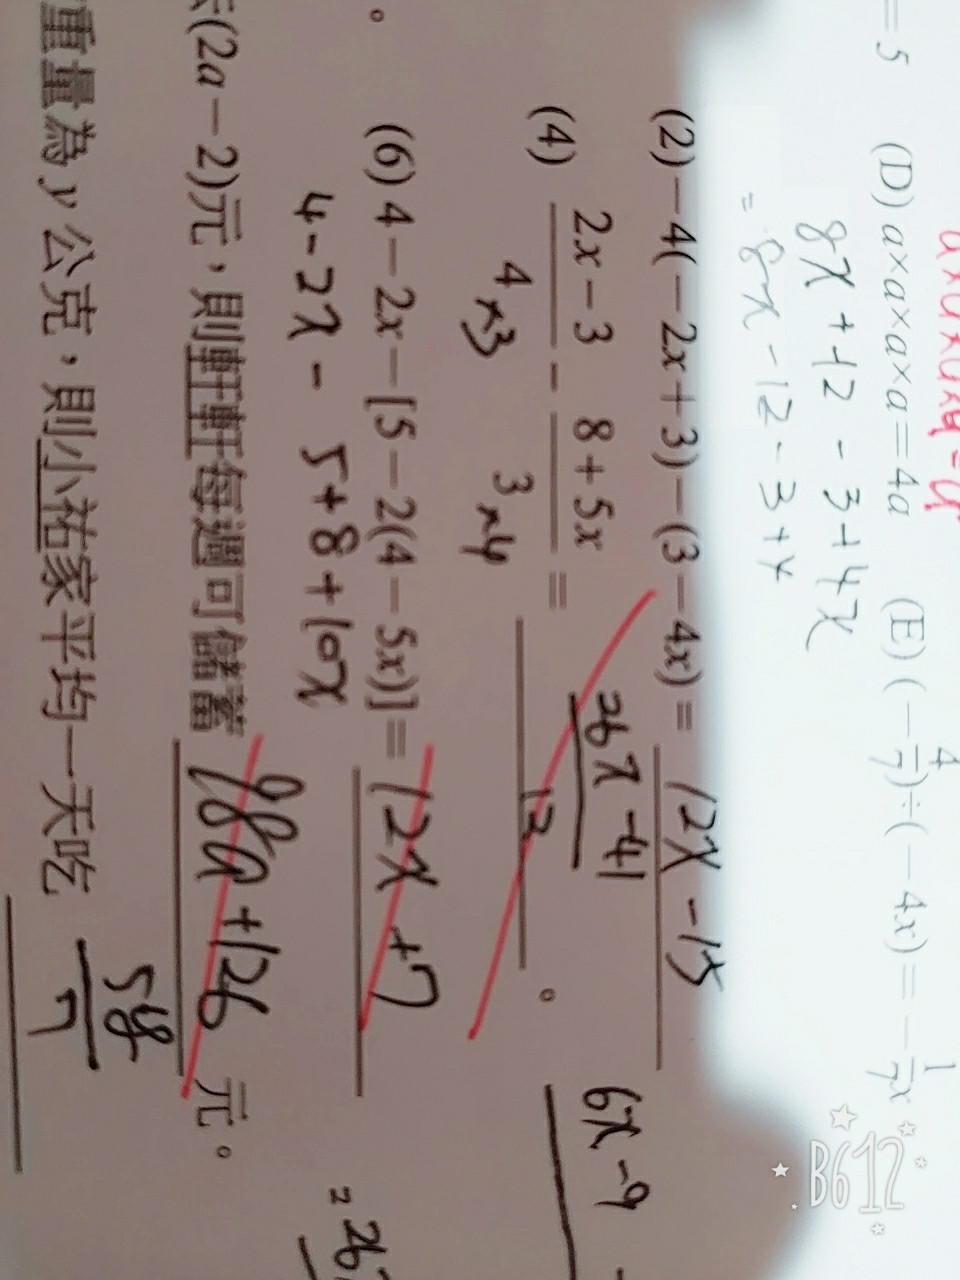 a×a×a×a=a
=5 (D) a×a×a×a=4a (E) (-4/7)÷(-4x)=-1/7x
8x+12-3+4x
=8x-12-3+4
(2) -4(-2x+3)-(3-4x)= 12x-15
(4) 2x-3/4 - 8+5x/3 = 26x-41/12 。 6x-9
×3 ×4
(6) 4-2x-[5-2(4-5x)]= 12x+7
4-2x-5+8+10x
= 26
。
(2a-2)元,則軒軒每週可儲蓄 98a+126 元。
重量為y公克,則小祐家平均一天吃 5y/7
B612